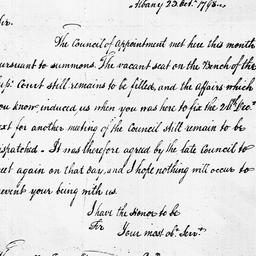 Albany 23. Oct. 1798.
Sir.
The Council of Appointment met here this month
pursuant to summons. The vacant seat on the Bench of the
Sup. Court still remains to be filled, and the affairs which
you know, induced us when you was here to fix the 24th Dec.
next for another meeting of the Council still remain to be
dispatched - It was therefore agreed by the late Council to
meet again on that day, and I hope nothing will occur to
prevent your being with us.
I have the Honor to be
Sir
Your most obt. Servt.